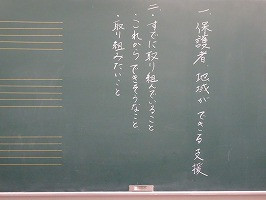 一、保護者 地域ができる支援
二、・すでに取り組んでいること
・これからできそうなこと
・取り組みたいこと